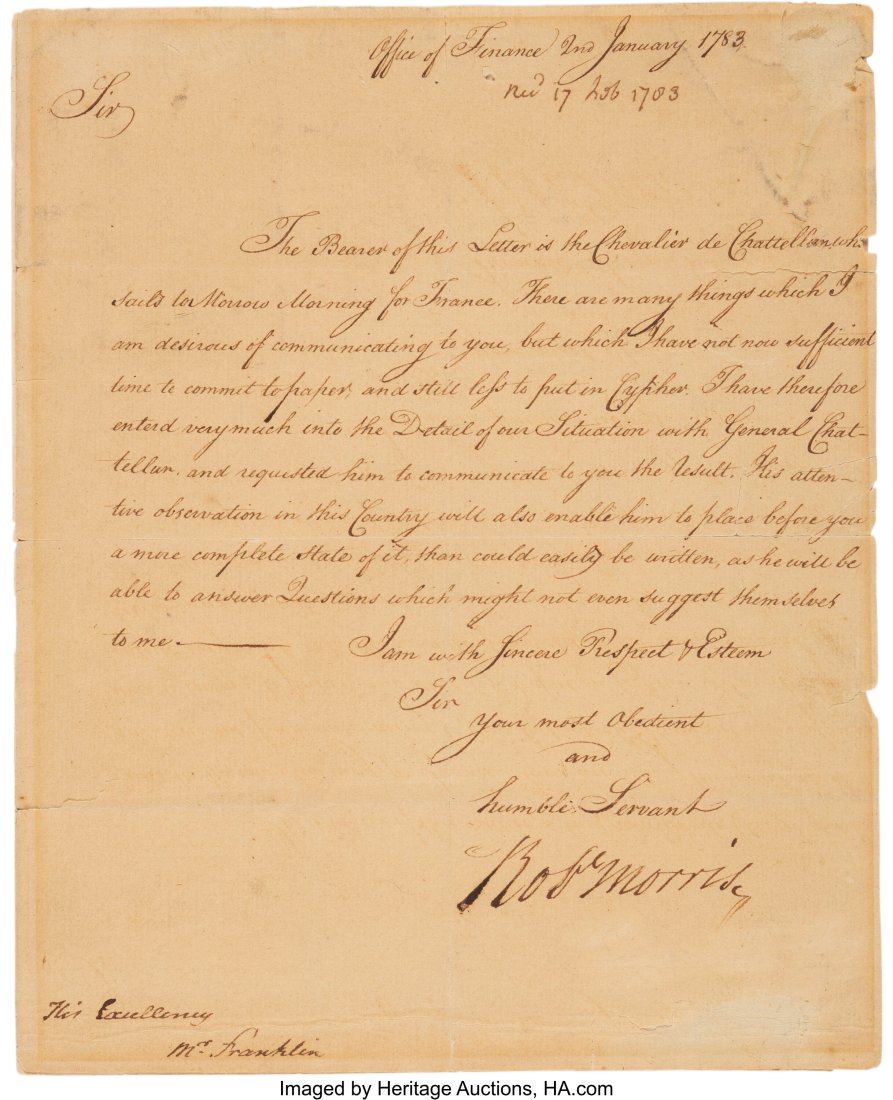 Office of Finance 2nd January 1783.
Recd 17 Feb 1783
Sir
The Bearer of this Letter is the Chevalier de Chattellux, wh
sails to Morrow Morning for France. There are many things which I
am desirous of communicating to you, but which I have not now sufficient
time to commit to paper, and still less to put in Cypher. I have therefore
enterd very much into the Detail of our Situation with General Chat-
tellux, and requested him to communicate to you the result. His atten-
tive observation in this Country will also enable him to place before you
a more complete state of it, than could easily be written, as he will be
able to answer Questions which might not even suggest themselves
to me.
I am with Sincere Respect & Esteem
Sir
your most Obedient
and
humble Servant
Robt Morris
His Excellency
Mr Franklin
Imaged by Heritage Auctions, HA.com